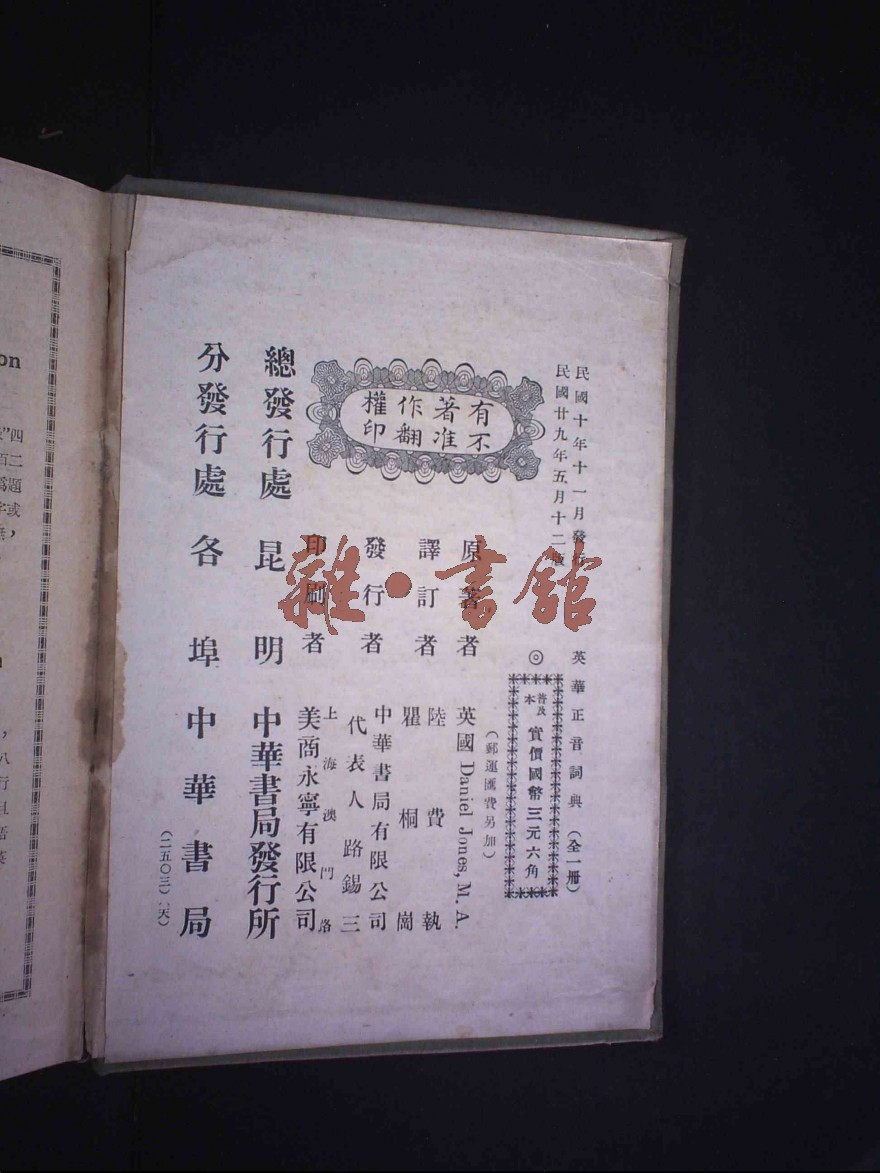 民國十年十一月發行
民國廿九年五月十二版
英華正音詞典(全一冊)
◎
普及本 實價國幣三元六角
(郵運匯費另加)
有著作權
不准翻印
原著者 英國 Daniel Jones, M. A.
譯訂者 陸費執
瞿桐崗
發行者 中華書局有限公司
代表人 路錫三
印刷者 上海澳門路
美商永寧有限公司
總發行處 昆明 中華書局發行所
分發行處 各埠中華書局
(二五〇三)
雜·書館
on